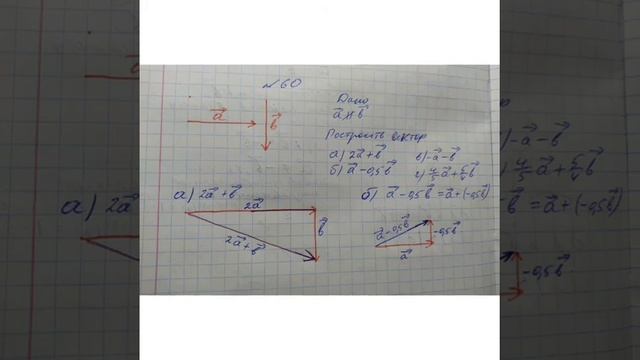 №60
a⃗
b⃗
Дано
a⃗ ∦ b⃗
Построить вектор
а) 2a⃗+b⃗ в) -a⃗-b⃗
б) a⃗-0,5b⃗ г) 4/5a⃗+5/4b⃗
а) 2a⃗+b⃗
2a⃗
b⃗
2a⃗+b⃗
б) a⃗-0,5b⃗=a⃗+(-0,5b⃗)
a⃗-0,5b⃗
-0,5b⃗
a⃗
a⃗
а) 2a⃗
-a⃗-b⃗
a⃗+5/4b⃗
b⃗=a⃗+(-0,5b⃗)
-0,5b⃗